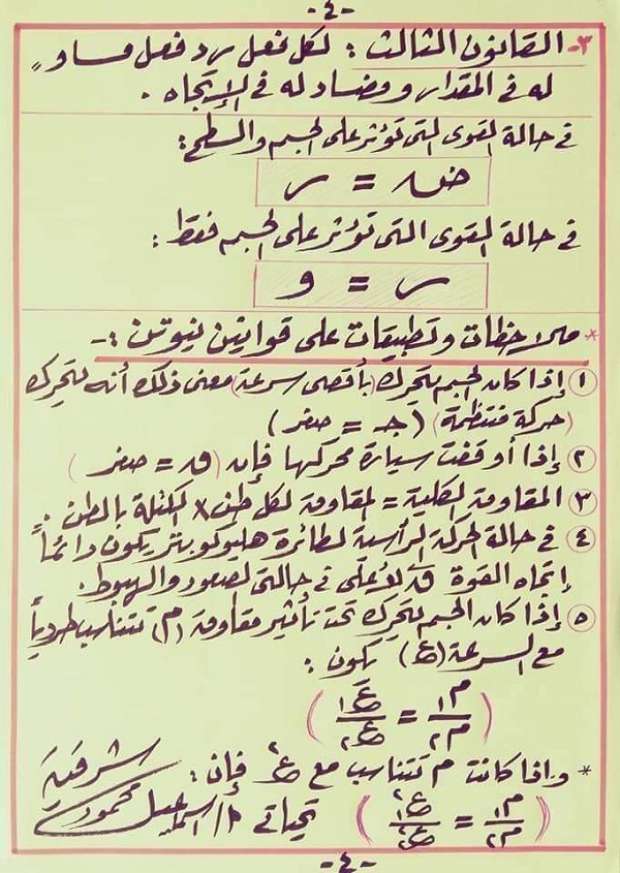 -٤-
٣- القانون الثالث : لكل فعل رد فعل مساوٍ
له فى المقدار ومضاد له فى الإتجاه .
فى حالة القوى التى تؤثر على الجسم والسطح :
ضـ = ر
فى حالة القوى التى تؤثر على الجسم فقط :
ر = و
* ملاحظات وتطبيقات على قوانين نيوتن :-
١ إذا كان الجسم يتحرك (بأقصى سرعة) معنى ذلك أنه يتحرك
(حركة منتظمة) (جـ = صفر)
٢ إذا أوقفت سيارة محركها فإن (ق = صفر)
٣ المقاومة الكلية = المقاومة لكل طن × الكتلة بالطن .
٤ فى حالة الحركة الرأسية لطائرة هليوكوبتر يكون دائماً
إتجاه القوة ق لأعلى فى حالتى الصعود والهبوط .
٥ إذا كان الجسم يتحرك تحت تأثير مقاومة (م) تتناسب طردياً
مع السرعة (ع) يكون :
(م١/م٢ = ع١/ع٢)
* وإذا كانت م تتناسب مع ع٢ فإن :
(م١/م٢ = ع٢١/ع٢٢)
تحياتى أ/ إسماعيل محمود
شرقية
-٤-